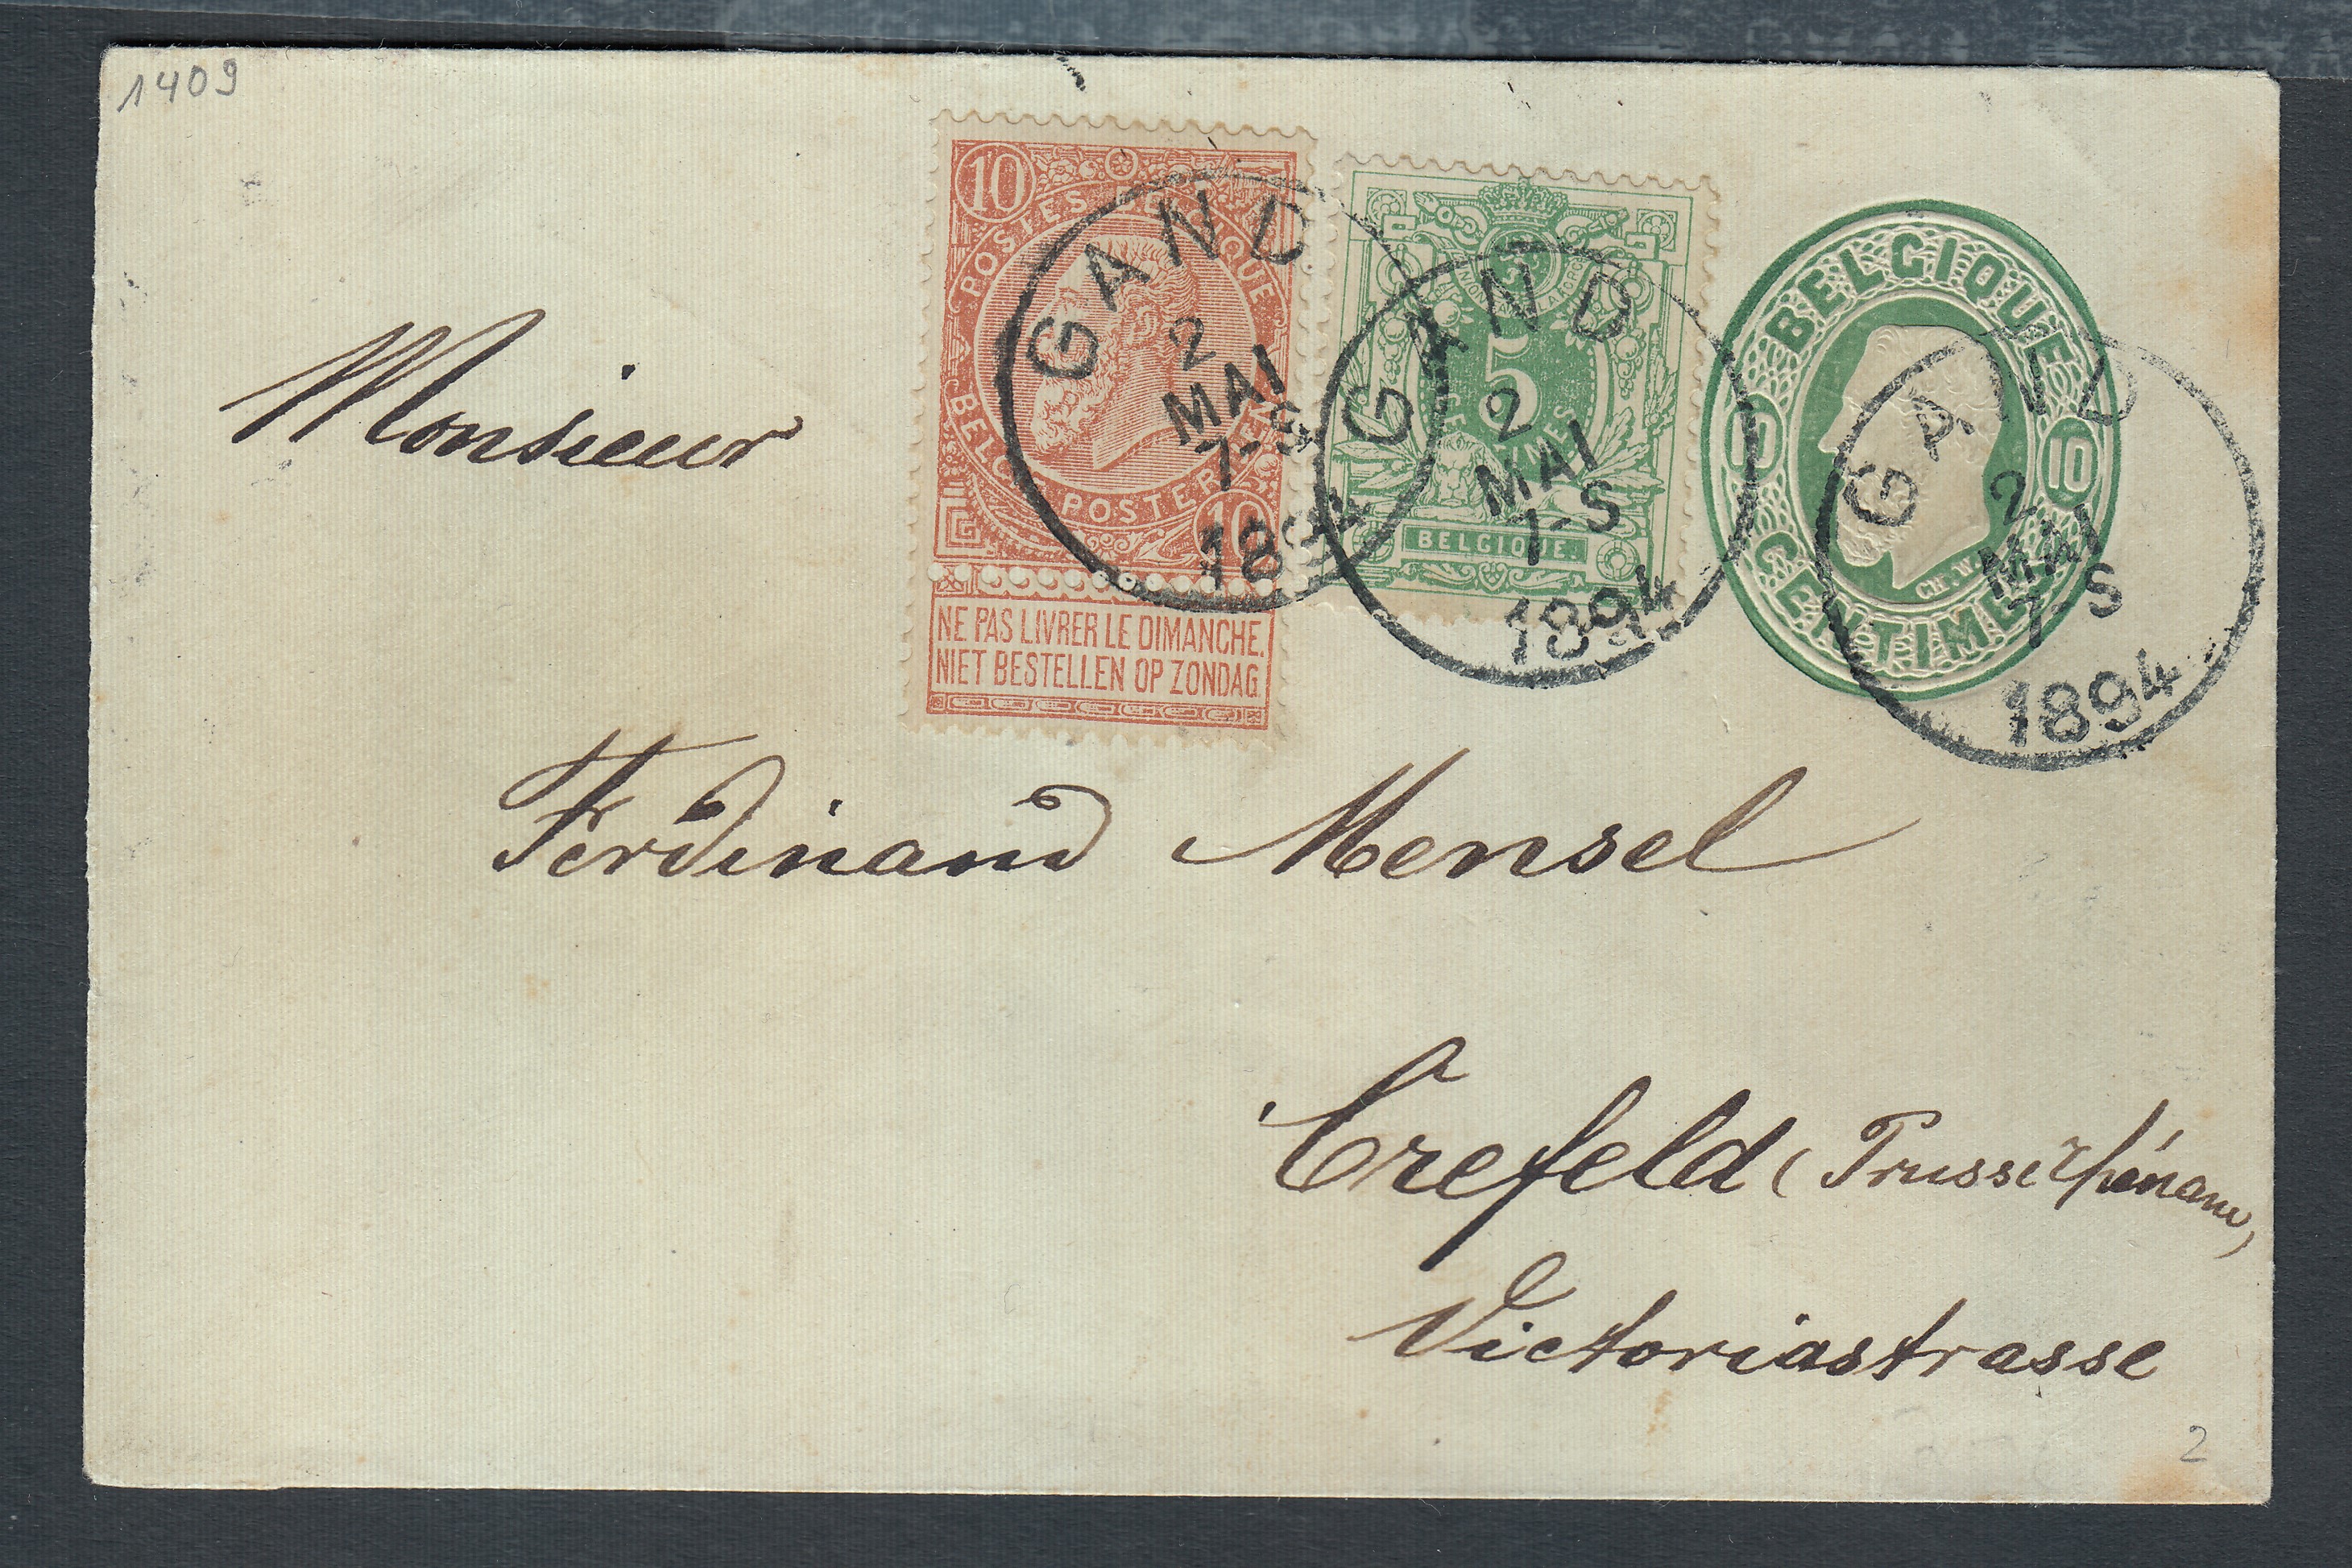 1409
10
POSTES BELGIQUE
BELG POSTERIJEN
10
NE PAS LIVRER LE DIMANCHE.
NIET BESTELLEN OP ZONDAG.
GAND
2
MAI
7-S
1894
5
BELGIQUE.
GAND
2
MAI
7-S
1894
BELGIQUE
10
10
CENTIMES
GAND
2
MAI
7-S
1894
Monsieur
Ferdinand Mensel
Crefeld (Prusse rhénane)
Victoriastrasse
2